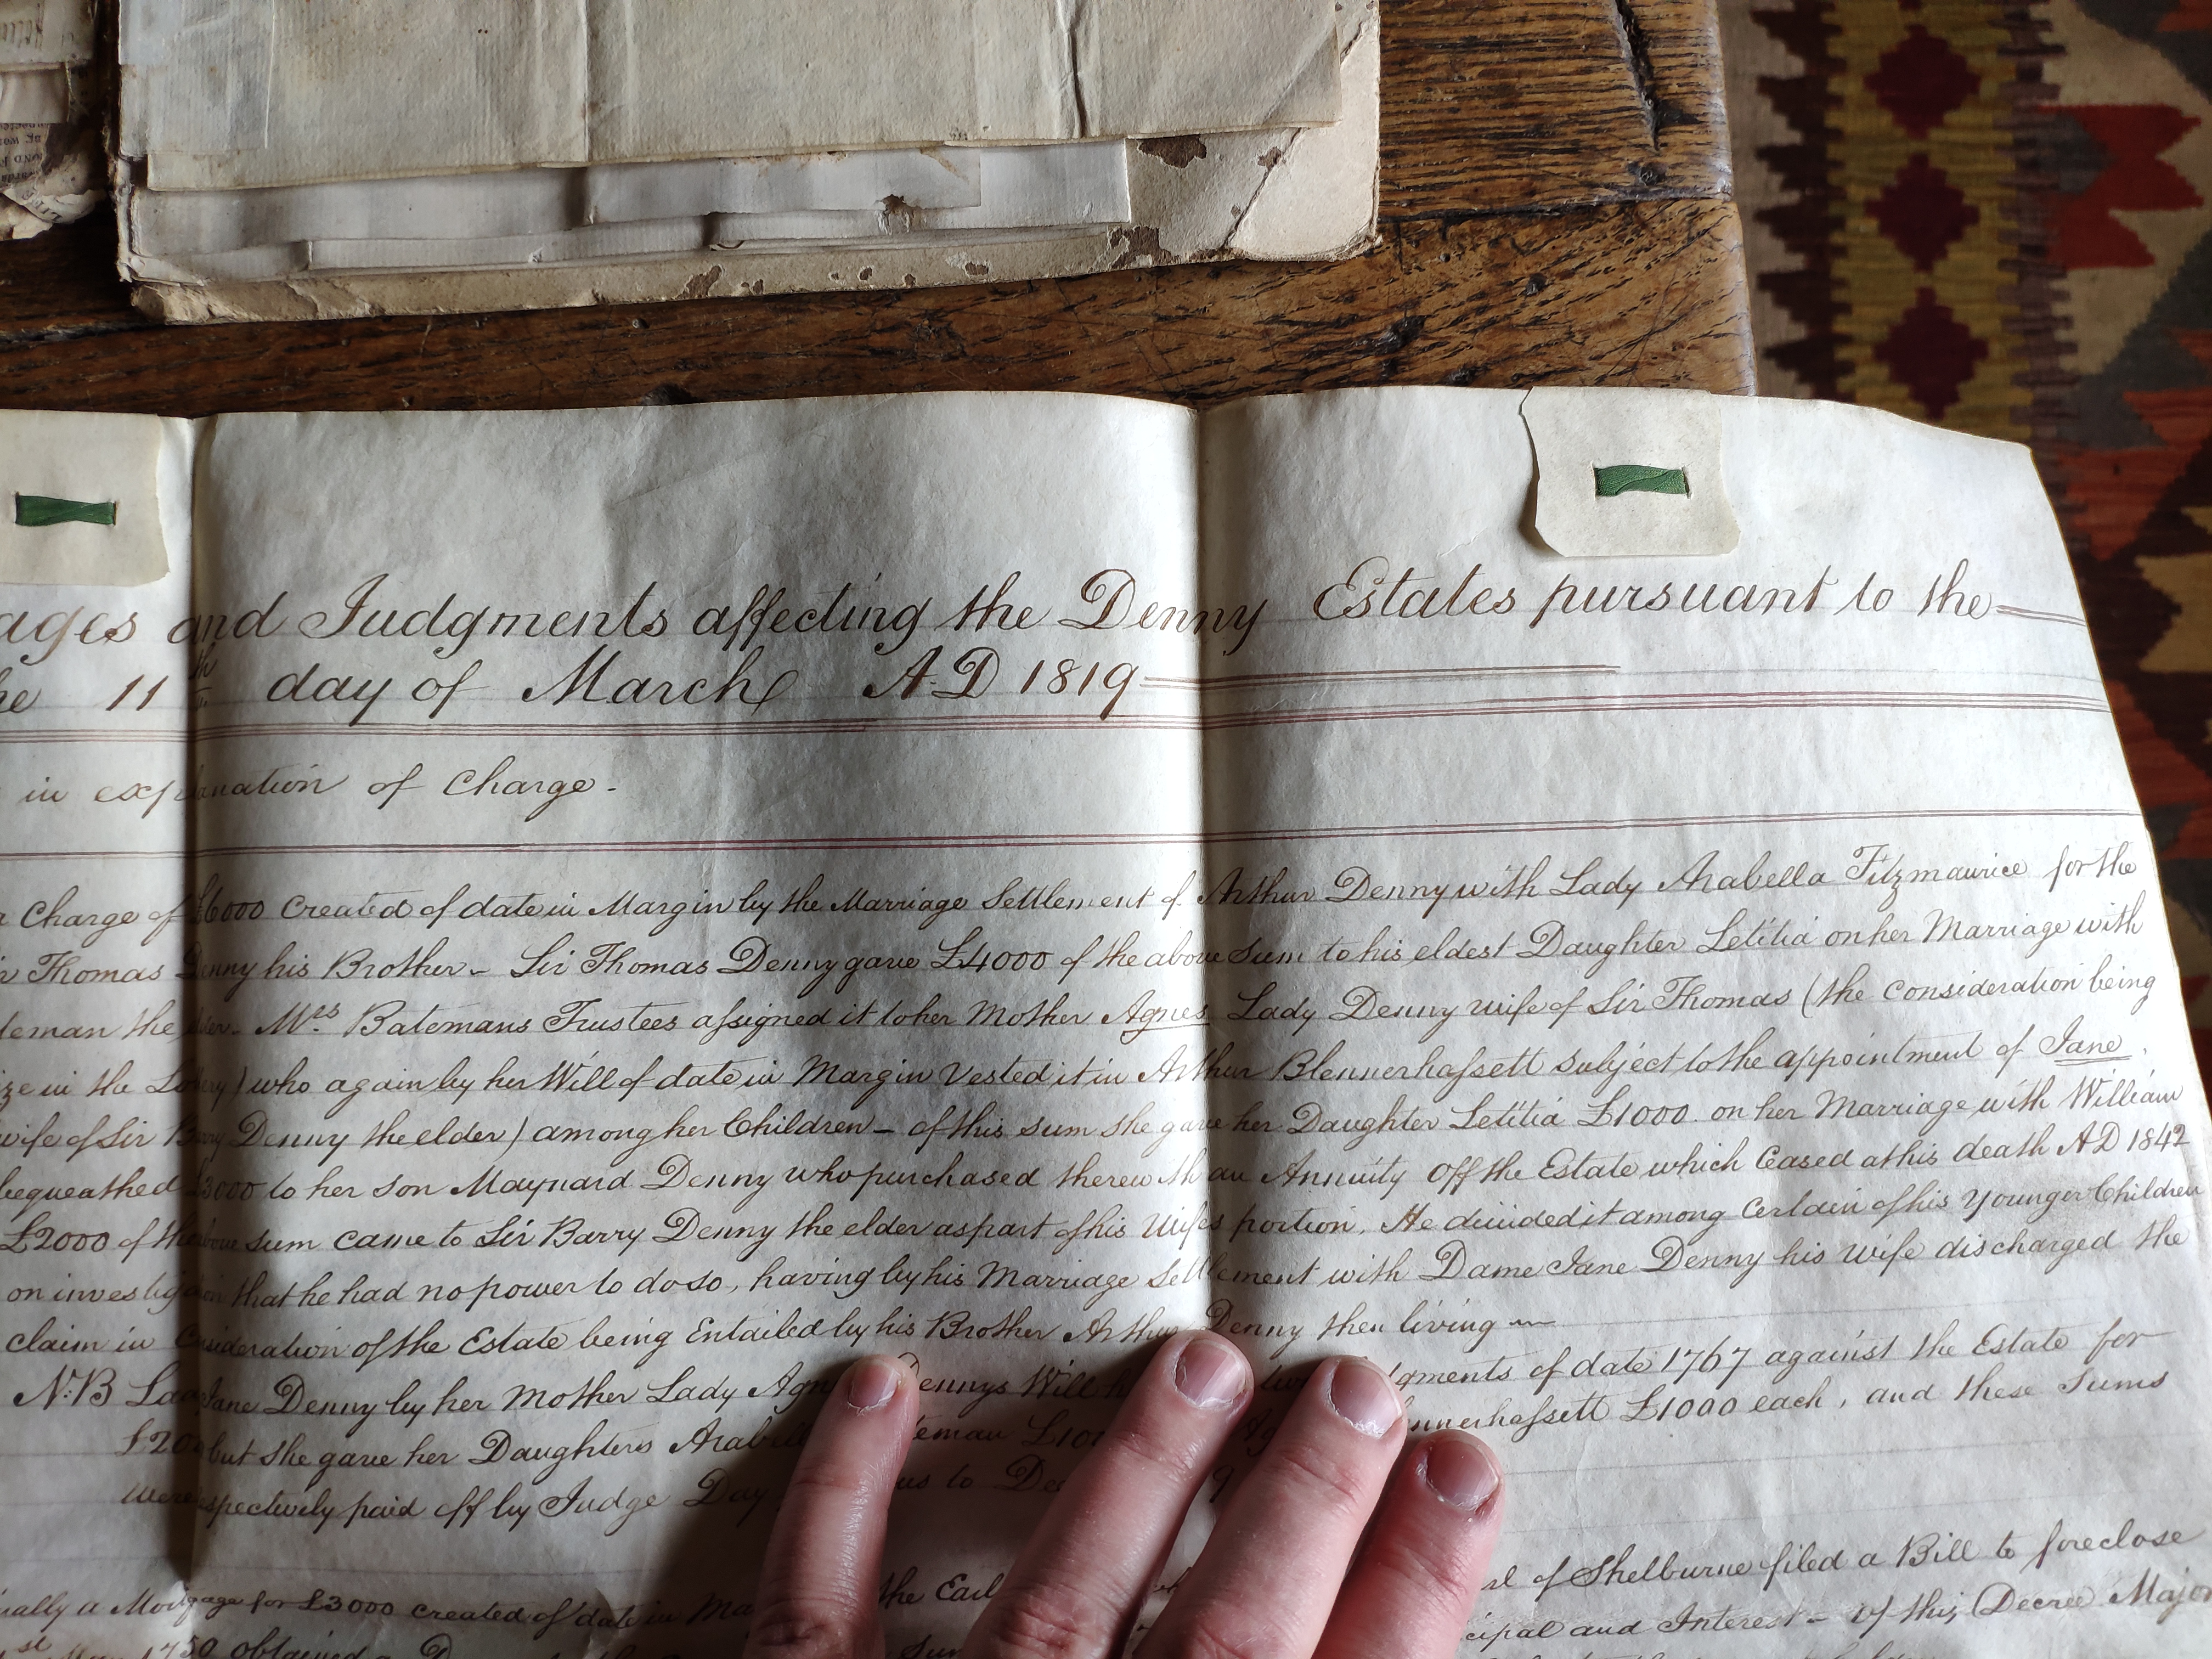 ages and Judgments affecting the Denny Estates pursuant to the
he 11th day of March A.D 1819
in explanation of Charge.
a Charge of £6000 created of date in Margin by the Marriage Settlement of Arthur Denny with Lady Arabella Fitzmaurice for the
ir Thomas Denny his Brother - Sir Thomas Denny gave £4000 of the above Sum to his eldest Daughter Letitia on her Marriage with
teman the elder. Mrs Batemans Trustees assigned it to her Mother Agnes Lady Denny wife of Sir Thomas (the consideration being
ize in the Lottery) who again by her Will of date in Margin Vested it in Arthur Blennerhassett subject to the appointment of Jane
wife of Sir Barry Denny the elder) among her Children - of this sum she gave her Daughter Letitia £1000 on her Marriage with William
bequeathed £3000 to her son Maynard Denny who purchased therewith an Annuity Off the Estate which Ceased at his death AD 1842
£2000 of the above sum came to Sir Barry Denny the elder as part of his Wifes portion. He divided it among Certain of his Younger Children
on investigation that he had no power to do so, having by his Marriage Settlement with Dame Jane Denny his wife discharged the
claim in Consideration of the Estate being Entailed by his Brother Arthur Denny then living
N.B Lady Jane Denny by her Mother Lady Agnes Dennys Will h gments of date 1767 against the Estate for
£20 but she gave her Daughters Arabella teman £10 Ag nnerhassett £1000 each, and these Sums
were respectively paid off by Judge Day us to De 9
ially a Mortgage for £3000 created of date in Ma the Earl rl of Shelburne filed a Bill to foreclose
st 1750 obtained a D Sum cipal and Interest - of this Decree Major